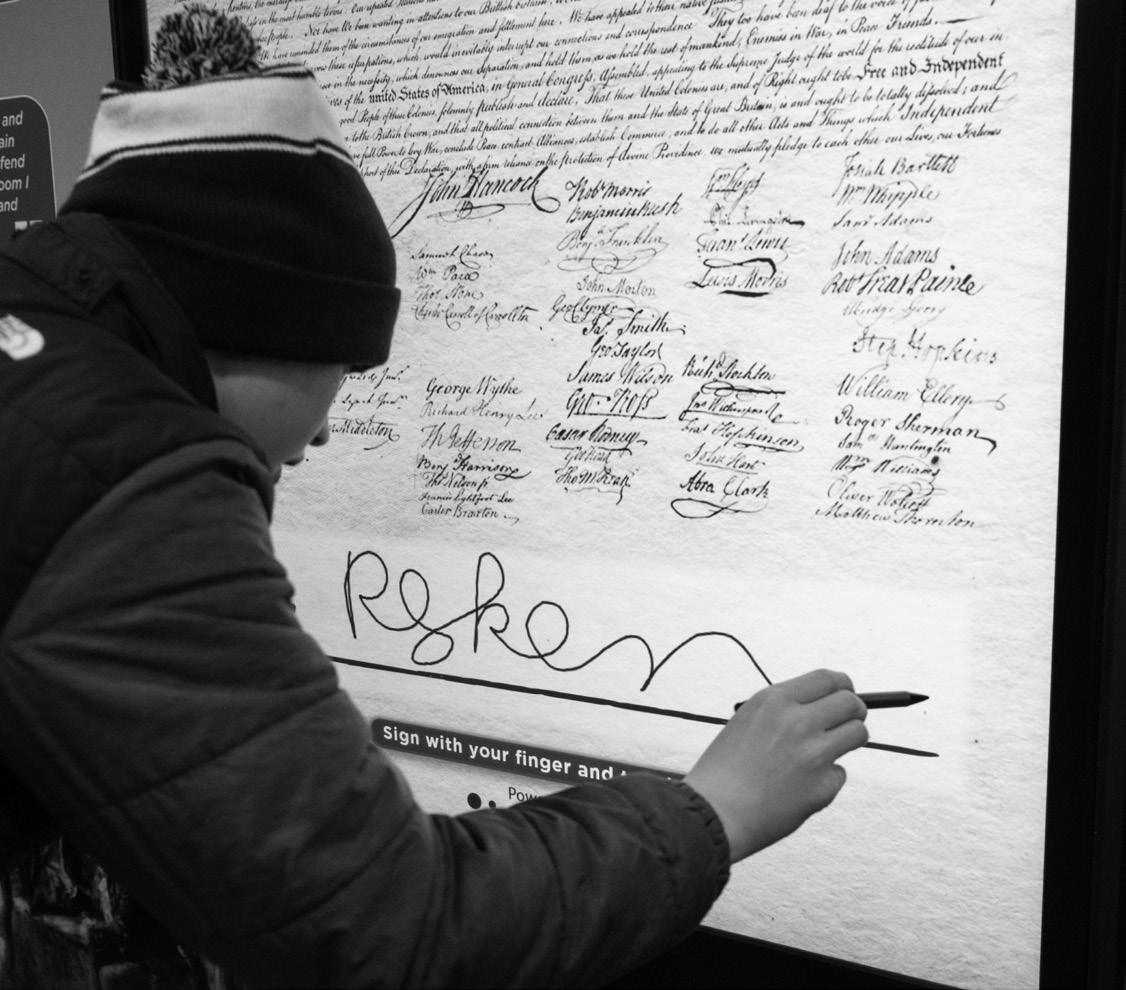 and
ain
fend
oom I
and
people. Nor have We been wanting in attentions to our British
have reminded them of the circumstances of our emigration and settlement here. We have appealed to their native
these usurpations, which would inevitably interrupt our connections and correspondence. They too have been deaf to the voice of
in the necessity, which denounces our Separation, and hold them, as we hold the rest of mankind, Enemies in War, in Peace Friends.
of the united States of America, in General Congress, Assembled, appealing to the Supreme Judge of the world for the rectitude of our in
good People of these Colonies, solemnly publish and declare, That these United Colonies are, and of Right ought to be Free and Independent
to the British Crown, and that all political connection between them and the State of Great Britain, is and ought to be totally dissolved; and
full Power to levy War, conclude Peace, contract Alliances, establish Commerce, and to do all other Acts and Things which Independent
port of this Declaration, with a firm reliance on the protection of divine Providence we mutually pledge to each other our Lives, our Fortunes
John Hancock
Samuel Chase
Wm Paca
Thos Stone
Charles Carroll of Carrollton
Middleton
George Wythe
Richard Henry Lee
Th Jefferson
Benj Harrison
Thos Nelson jr
Francis Lightfoot Lee
Carter Braxton
Robt Morris
Benjamin Rush
Benja Franklin
John Morton
Geo Clymer
Jas Smith
Geo Taylor
James Wilson
Geo Ross
Caesar Rodney
Geo Read
Tho M:Kean
Wm Floyd
Phil. Livingston
Frans Lewis
Lewis Morris
Richd Stockton
Jno Witherspoon
Fras Hopkinson
John Hart
Abra Clark
Josiah Bartlett
Wm Whipple
Saml Adams
John Adams
Robt Treat Paine
Elbridge Gerry
Step Hopkins
William Ellery
Roger Sherman
Sam Huntington
Wm Williams
Oliver Wolcott
Matthew Thornton
Sign with your finger and
Pow